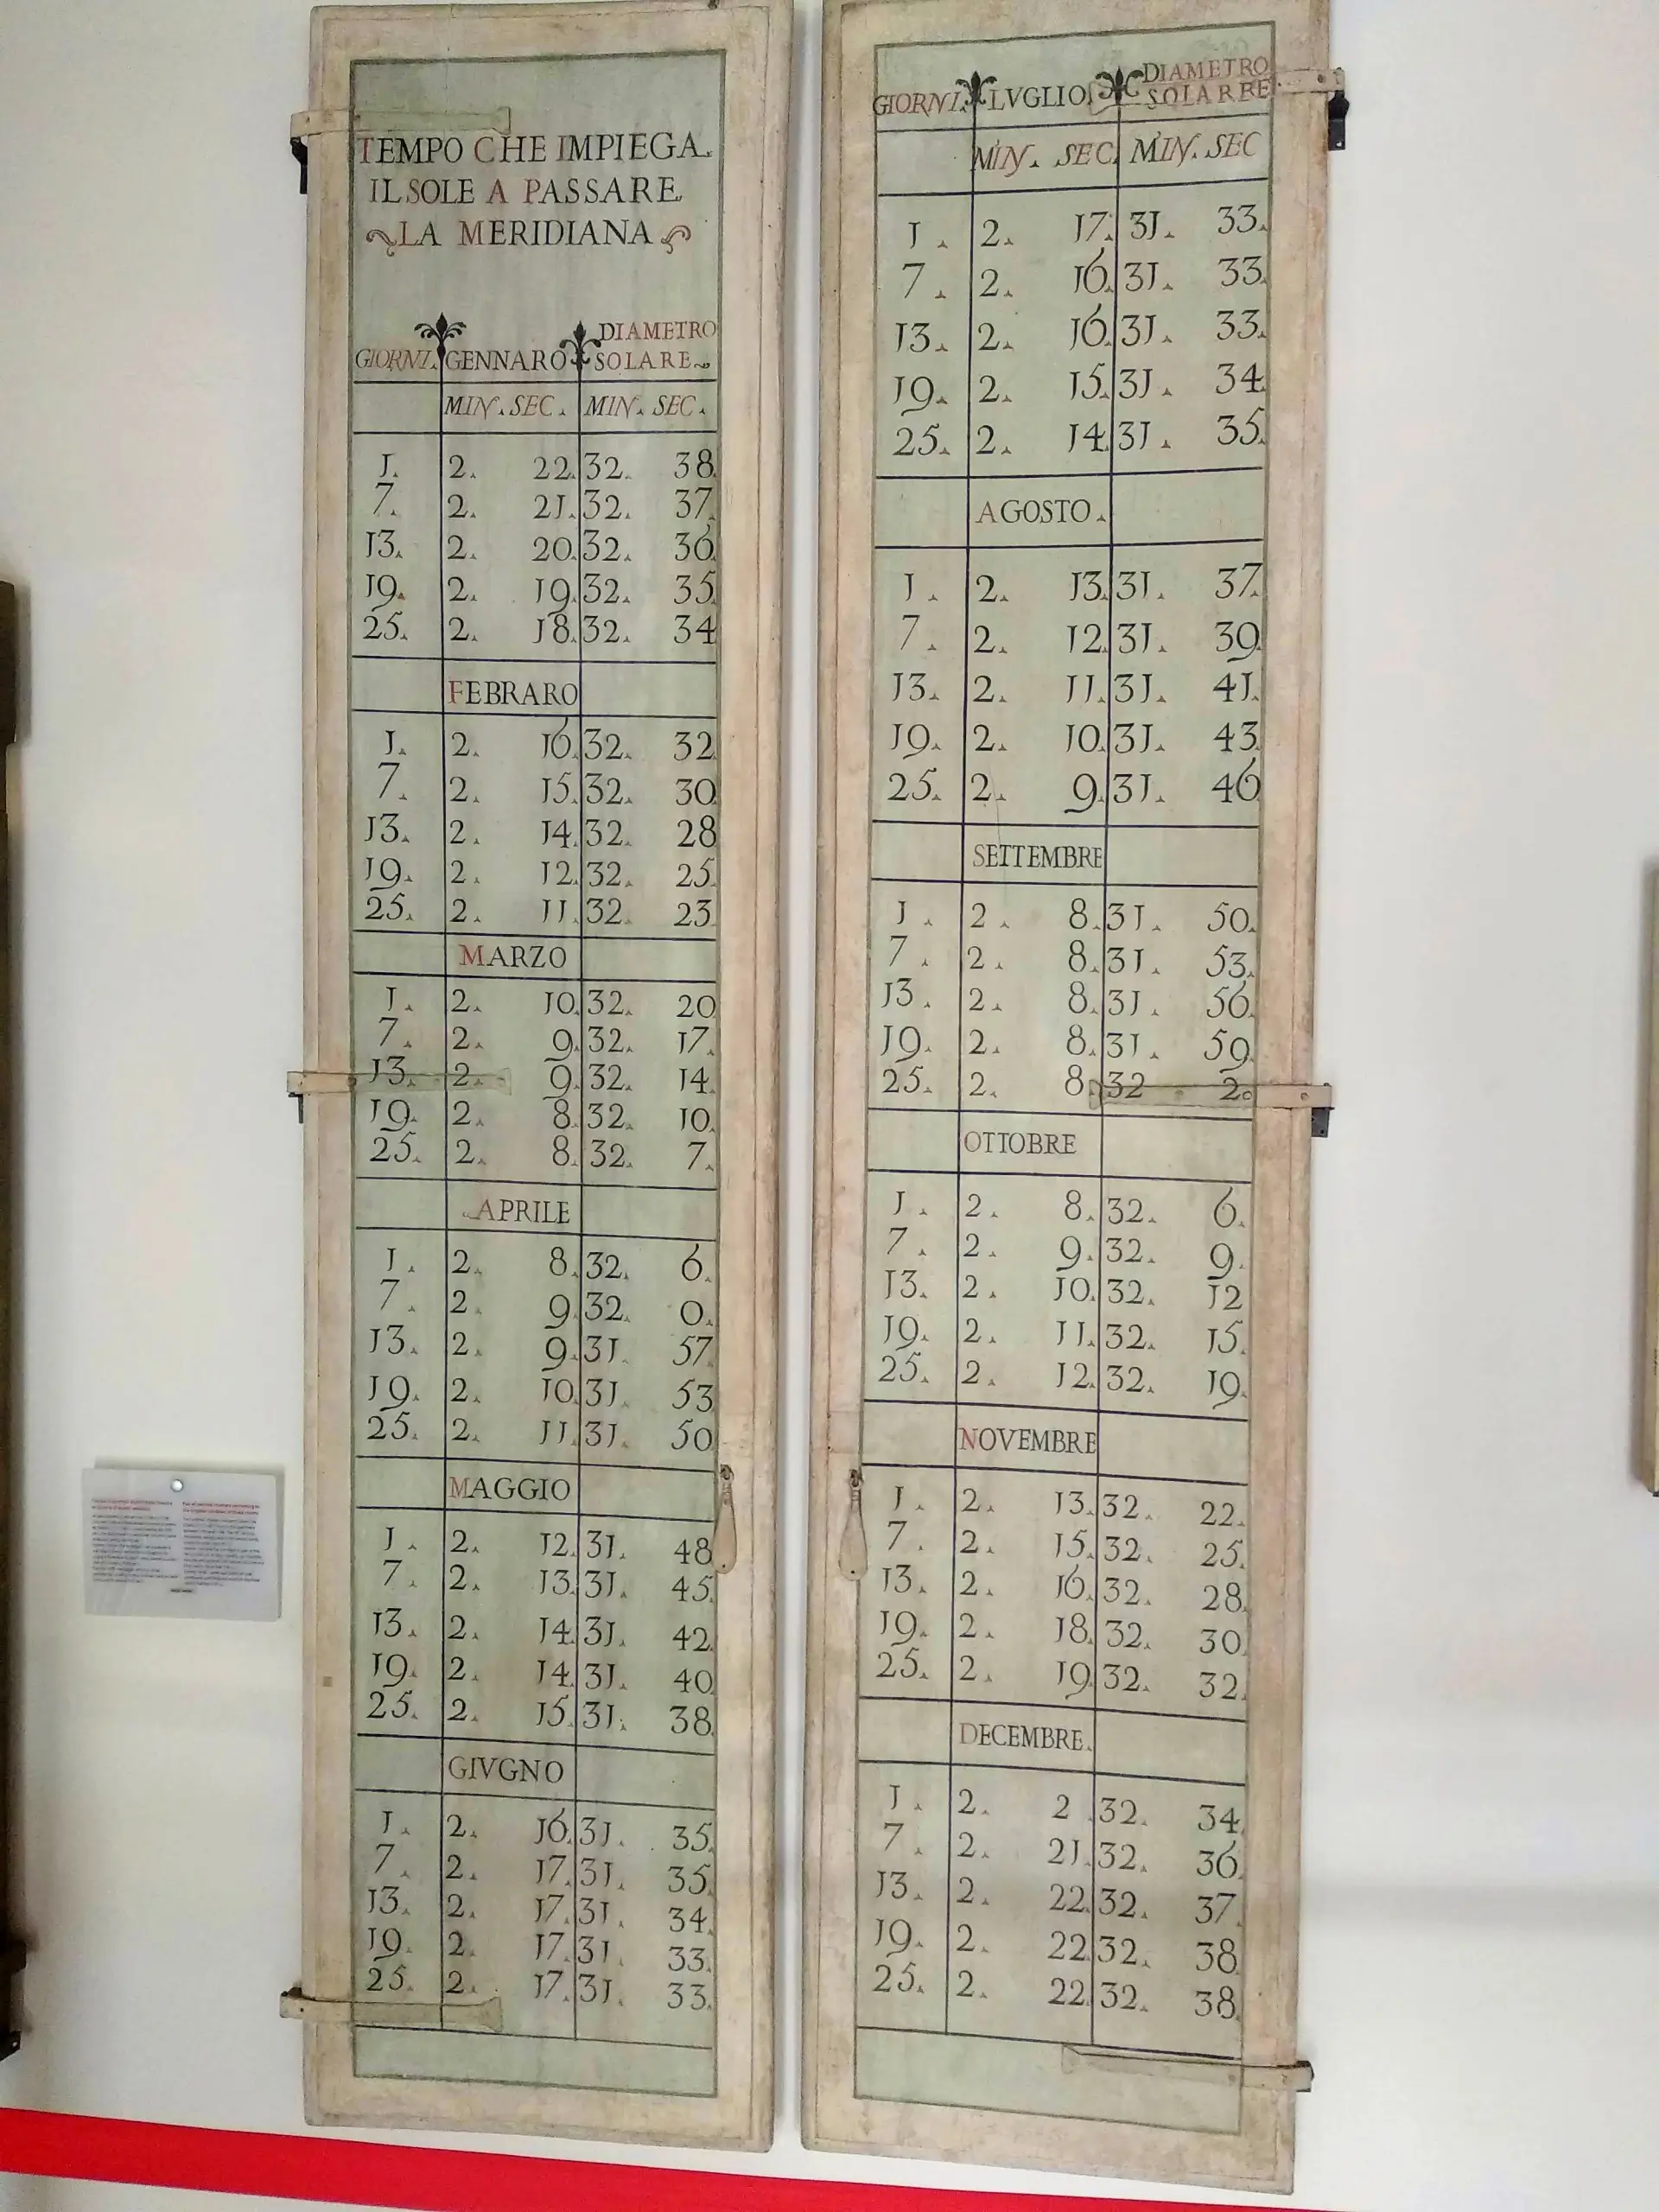 TEMPO CHE IMPIEGA.
IL SOLE A PASSARE
LA MERIDIANA
GIORNI. GENNARO DIAMETRO SOLARE
MIN. SEC. MIN. SEC.
J. 2. 22. 32. 38.
7. 2. 2J. 32. 37.
J3. 2. 20. 32. 36.
J9. 2. J9. 32. 35.
25. 2. J8. 32. 34
FEBRARO
J. 2. J6. 32. 32
7. 2. J5. 32. 30.
J3. 2. J4. 32. 28
J9. 2. J2. 32. 25.
25. 2. JJ. 32. 23.
MARZO
J. 2. J0. 32. 20
7. 2. 9. 32. J7.
J3. 2. 9. 32. J4.
J9. 2. 8. 32. J0.
25. 2. 8. 32. 7.
APRILE
J. 2. 8. 32. 6.
7. 2. 9. 32. 0.
J3. 2. 9. 3J. 57.
J9. 2. J0. 3J. 53
25. 2. JJ. 3J. 50
MAGGIO
J. 2. J2. 3J. 48
7. 2. J3. 3J. 45
J3. 2. J4. 3J. 42.
J9. 2. J4. 3J. 40
25. 2. J5. 3J. 38.
GIVGNO
J. 2. J6. 3J. 35.
7. 2. J7. 3J. 35.
J3. 2. J7. 3J. 34.
J9. 2. J7. 3J. 33.
25. 2. J7. 3J. 33.
GIORNI. LVGLIO. DIAMETRO SOLARRE
MIN. SEC. MIN. SEC
J. 2. J7. 3J. 33.
7. 2. J6. 3J. 33.
J3. 2. J6. 3J. 33.
J9. 2. J5. 3J. 34
25. 2. J4. 3J. 35.
AGOSTO.
J. 2. J3. 3J. 37.
7. 2. J2. 3J. 39
J3. 2. JJ. 3J. 4J.
J9. 2. J0. 3J. 43
25. 2. 9. 3J. 46
SETTEMBRE
J. 2. 8. 3J. 50.
7. 2. 8. 3J. 53.
J3. 2. 8. 3J. 56.
J9. 2. 8. 3J. 59.
25. 2. 8. 32 2.
OTTOBRE
J. 2. 8. 32. 6.
7. 2. 9. 32. 9.
J3. 2. J0. 32. J2
J9. 2. JJ. 32. J5.
25. 2. J2. 32. J9.
NOVEMBRE
J. 2. J3. 32. 22.
7. 2. J5. 32. 25.
J3. 2. J6. 32. 28.
J9. 2. J8. 32. 30
25. 2. J9. 32. 32.
DECEMBRE.
J. 2. 2 32. 34.
7. 2. 2J. 32. 36
J3. 2. 22. 32. 37.
J9. 2. 22. 32. 38
25. 2. 22. 32. 38.